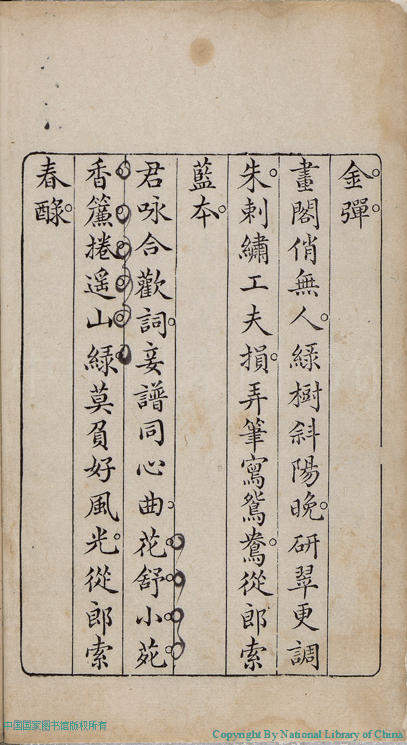 金彈
畫閣俏無人綠樹斜陽晚研翠更調
朱刺繡工夫損弄筆寫鴛鴦從郎索
藍本
君咏合歡詞妾譜同心曲花舒小苑
香簾捲遥山綠莫負好風光從郎索
春醁
中国国家图书馆版权所有
Copyright By National Library of China